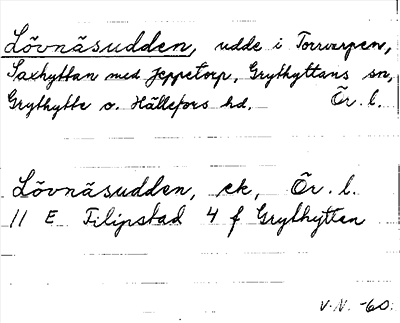 Lövnäsudden, udde i Torrvarpen,
Saxhyttan med Jeppetorp, Grythyttans sn,
Grythytte o. Hällefors hd. Ör. l.
Lövnäsudden, ek, Ör. l.
11 E Filipstad 4 f Grythyttan
V.N. -60.